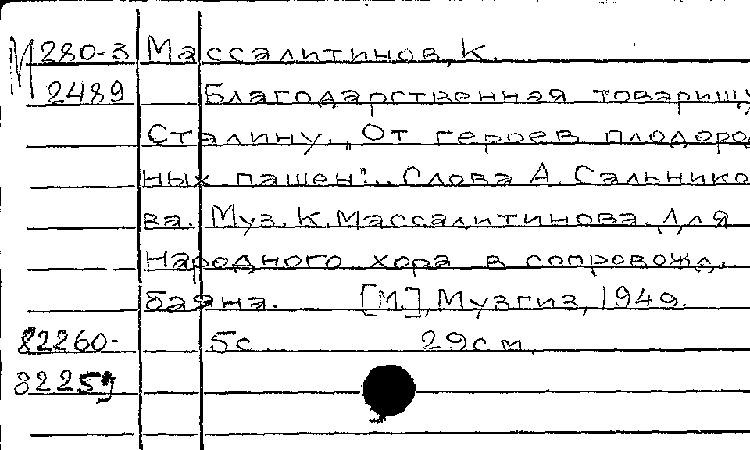 М 280-3 Массалитинов, К.
2489 Благодарственная товарищу
Сталину. "От героев плодород
ных пашен"... Слова А. Сальнико
ва. Муз. К. Массалитинова. Для
народного хора в сопровожд.
баяна. [М.], Музгиз, 1949.
82260- 5с 29см.
82259